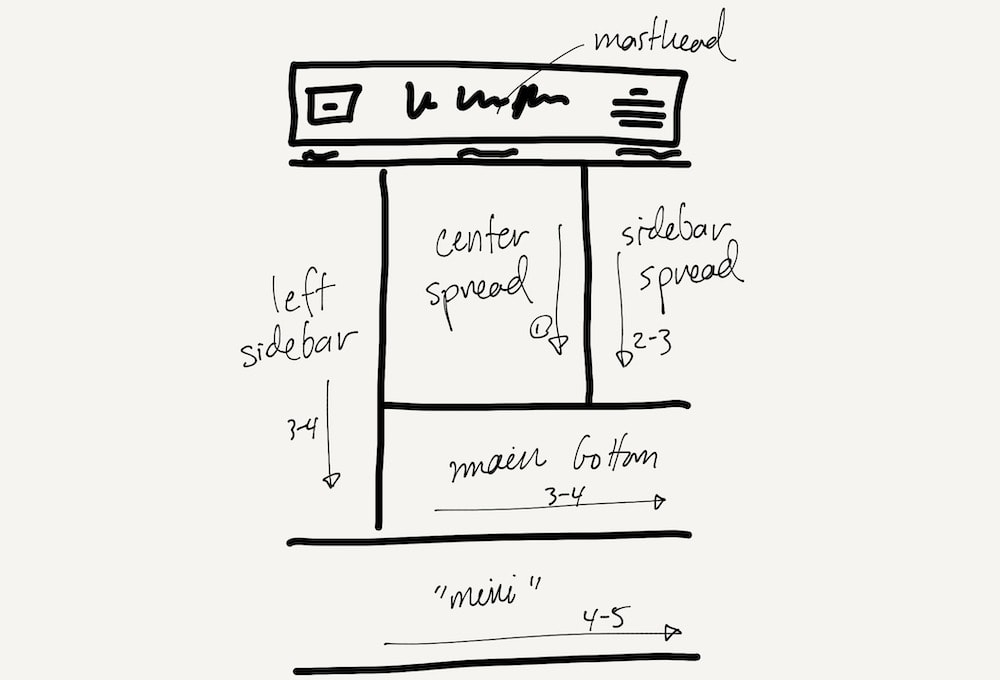 masthead
center
spread
①
sidebar
spread
2-3
left
sidebar
3-4
main bottom
3-4
"mini"
4-5